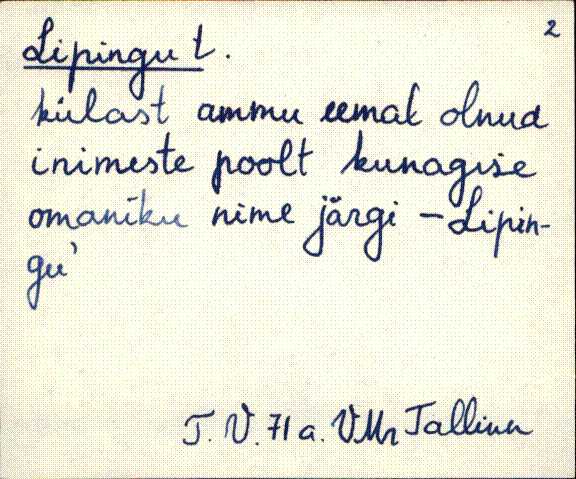 2
Lipingu t.
külast ammu eemal olnud
inimeste poolt kunagise
omaniku nime järgi - Lipin-
gu'
T. V. 71 a. VMr Tallinn